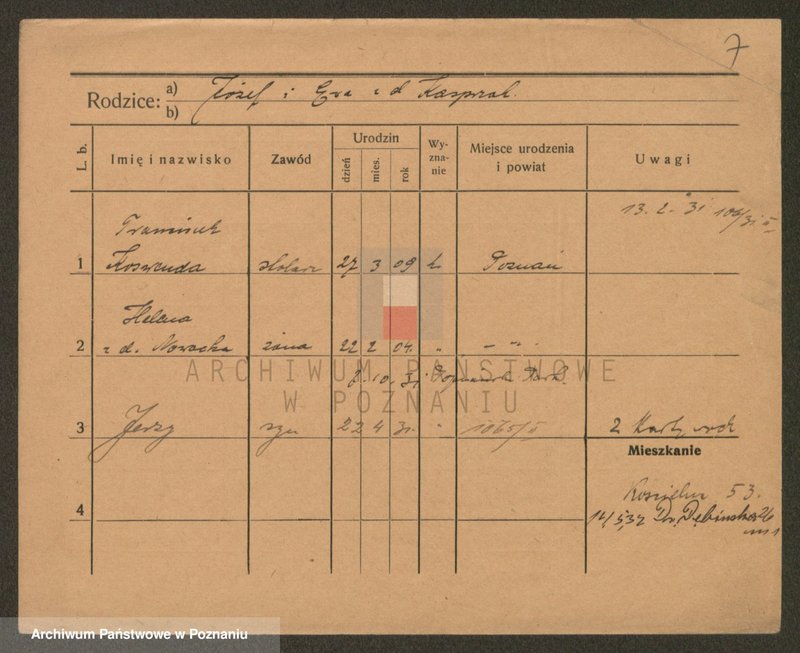 7
Rodzice: a) b) Józef i Ewa z d. Kasprzak.
L. b.
Imię i nazwisko
Zawód
Urodzin
dzień
mies.
rok
Wy-
zna-
nie
Miejsce urodzenia
i powiat
Uwagi
13. 2. 31
Franciszek
1 stolarz 27 3 09 k. Poznań
Helena
2 z d. Nowacka żona 22 2 04. " - " -
8. 10. 31
3 Jerzy syn 22 4 31. "
2 Karty
Mieszkanie
53.
4
14/5.37 Dębińska 26
m 1
ARCHIWUM PAŃSTWOWE
W POZNANIU
Archiwum Państwowe w Poznaniu